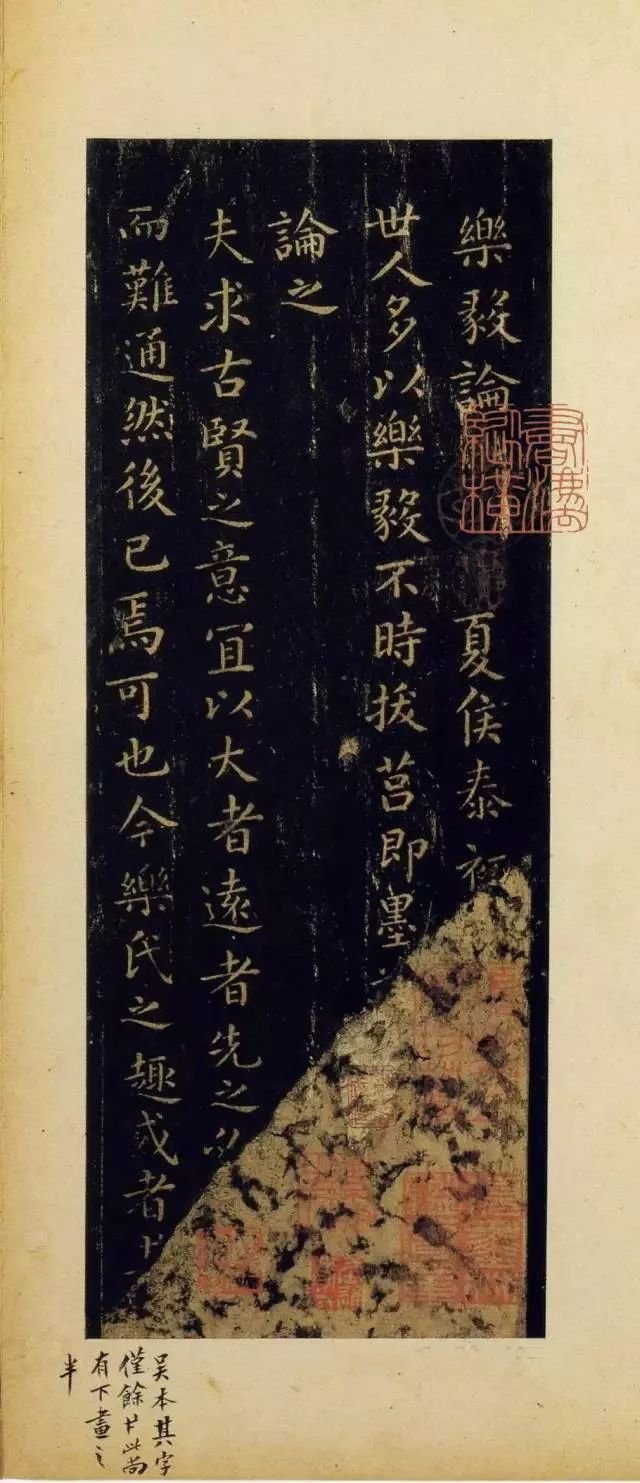 樂毅論 夏侯泰初
世人多以樂毅不時拔莒即墨
論之
夫求古賢之意宜以大者遠者先之
而難通然後已焉可也今樂氏之趣或者
吴本其字
僅餘 此尚
有下畫之
半